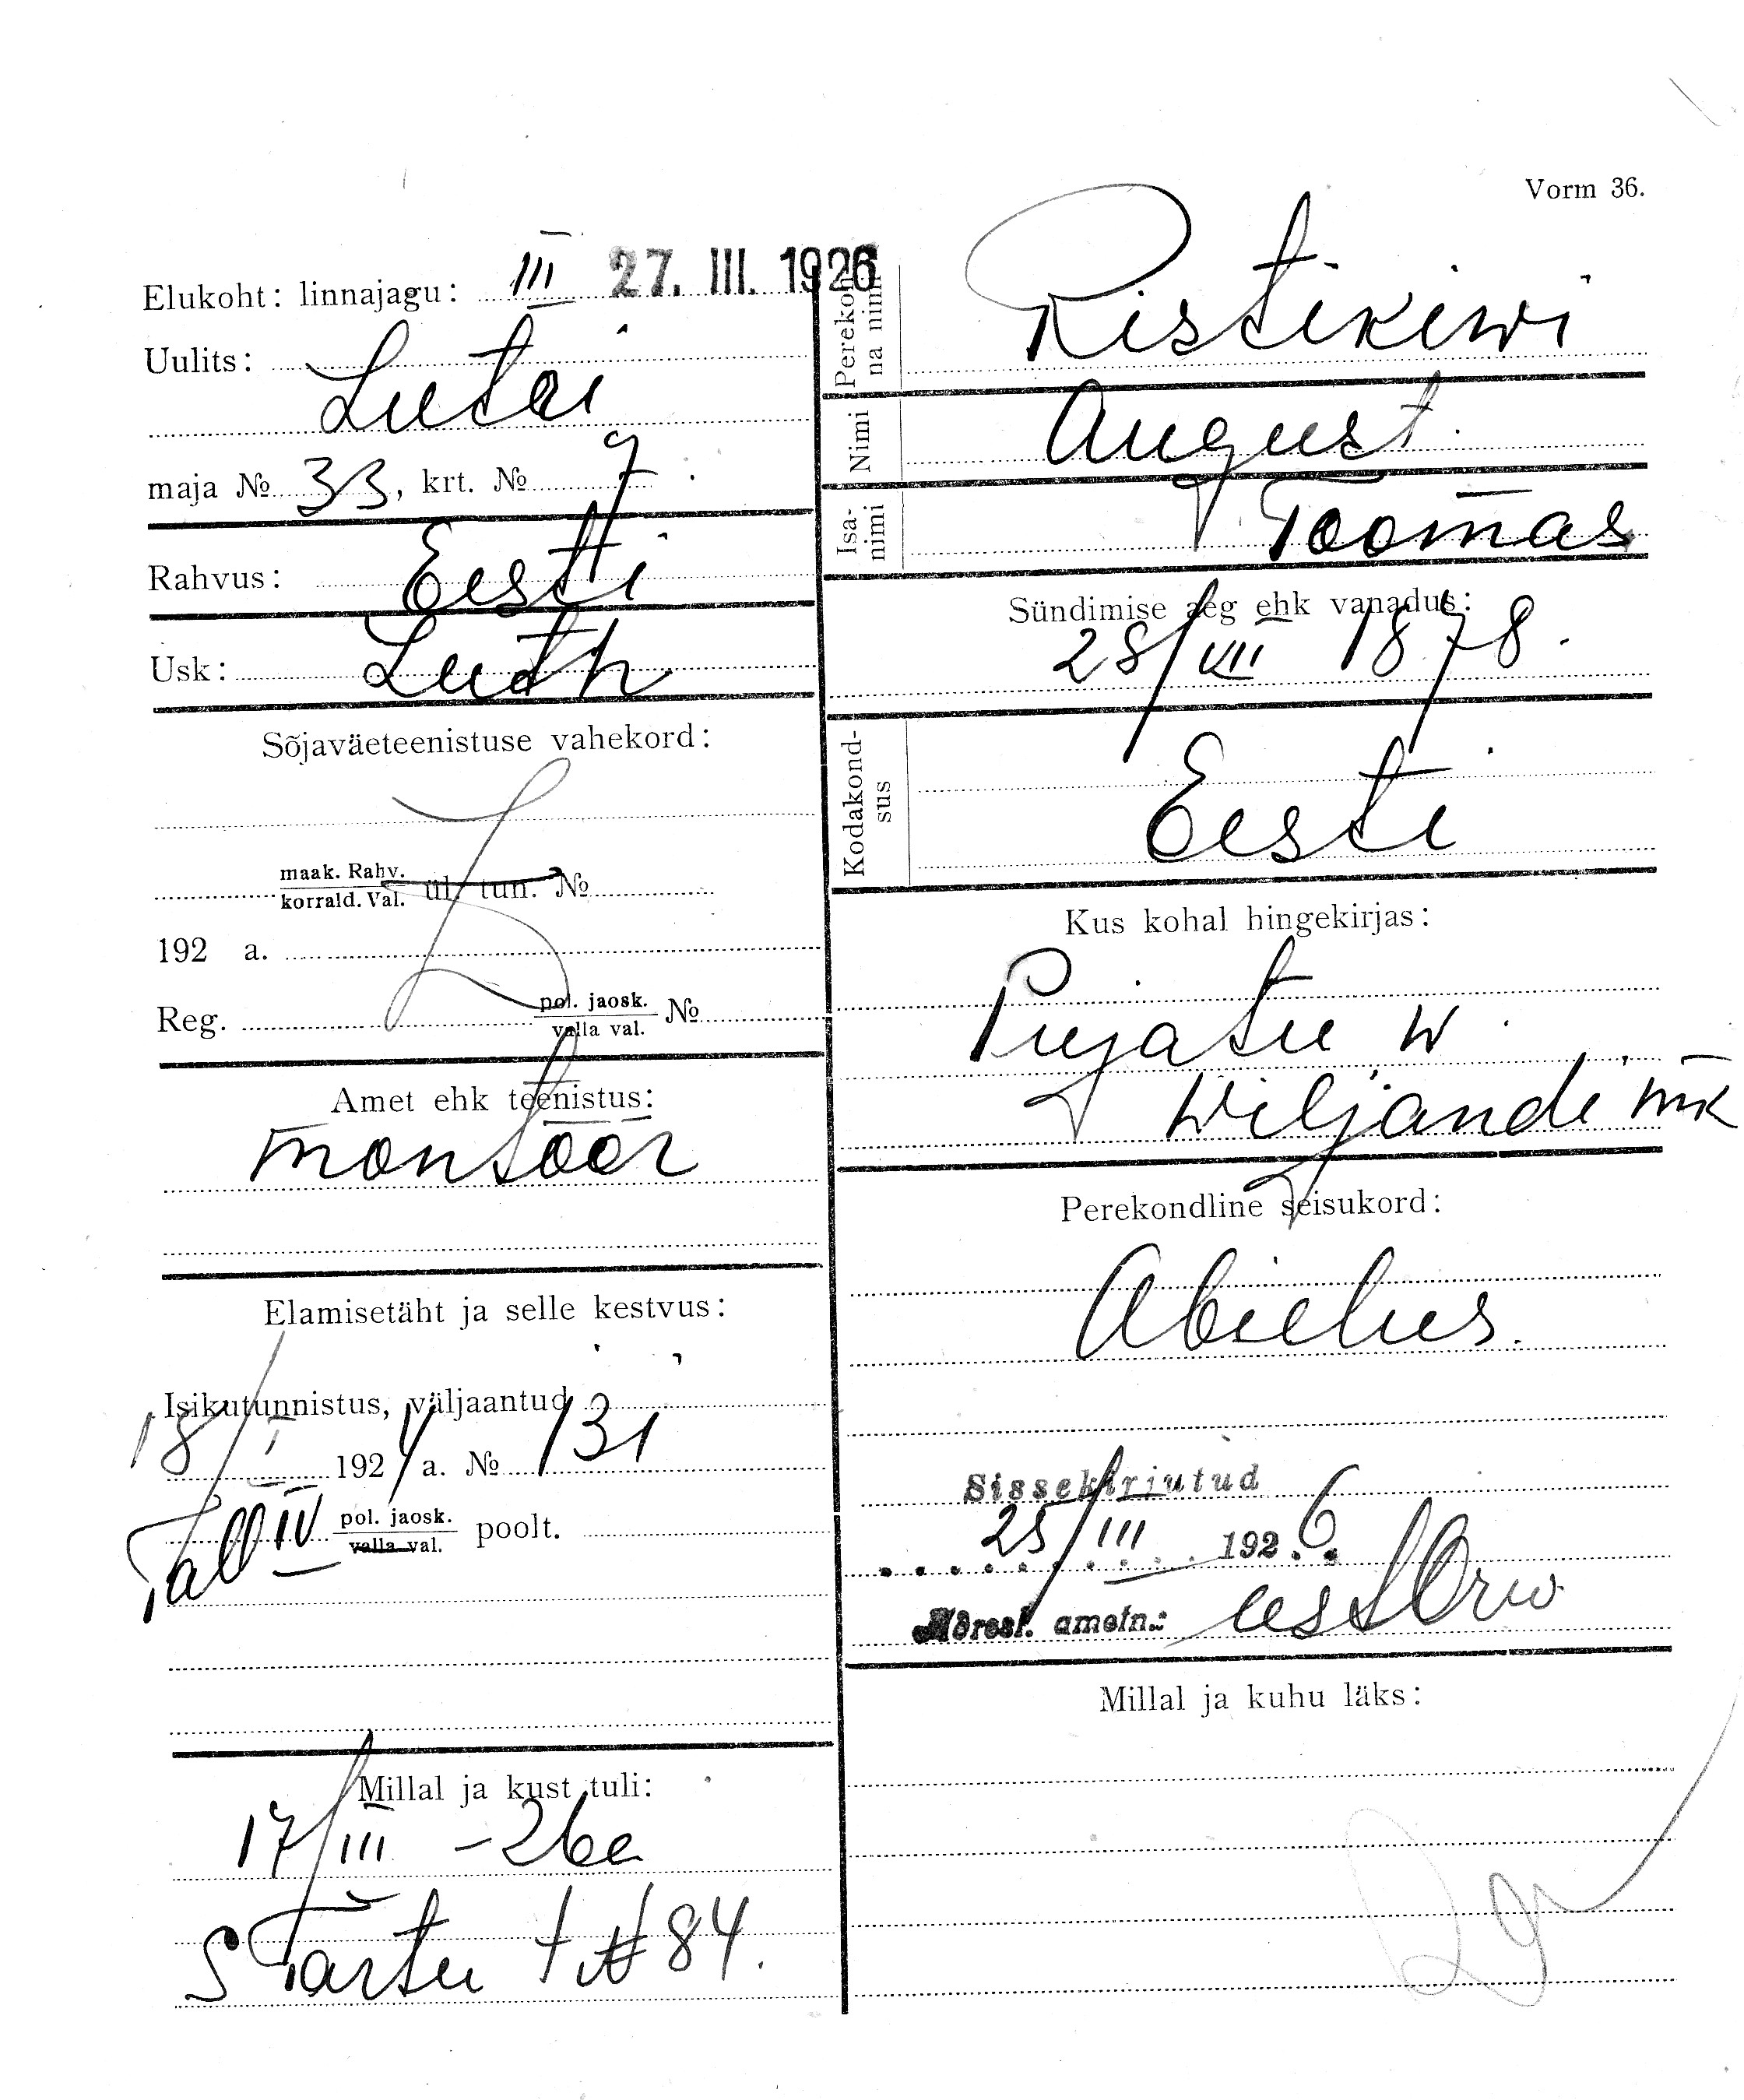 Vorm 36.
Elukoht: linnajagu: III 27. III. 1926
Uulits:
Lutri
maja № 33, krt. № 7.
Rahvus: Eesti
Usk: Luth
Sõjaväeteenistuse vahekord:
maak. Rahv.
korrald. Val. ül. tun. №
192 a.
Reg. pol. jaosk.
valla val. №
Amet ehk teenistus:
montöör
Elamisetäht ja selle kestvus:
Isikutunnistus, väljaantud
18/I 1924 a. № 131
Tall IV pol. jaosk.
valla val. poolt.
Millal ja kust tuli:
17/III - 26 a
S Tartu t № 84.
Perekon
na nimi
Ristikiwi
Nimi August.
Isa-
nimi
Toomas
Sündimise aeg ehk vanadus:
28/VII 1878.
Kodakond-
sus
Eesti
Kus kohal hingekirjas:
Pujatu w.
Wiljandi mk
Perekondline seisukord:
Abielus.
Sissekirjutud
25/III 1926.
Adresl. ametn.:
Millal ja kuhu läks: